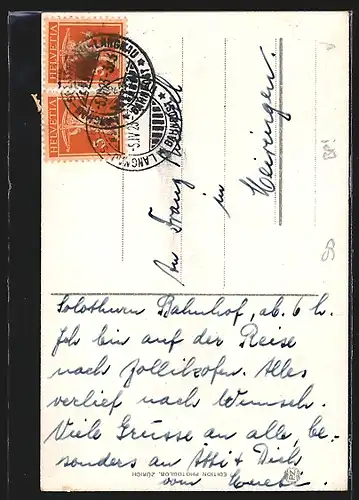 HELVETIA
HELVETIA
LANGNAU
An Franz
in
Meiringen.
BP!
Solothurn Bahnhof, ab. 6 h.
Ich bin auf der Reise
nach Zollikofen. Alles
verlief nach Wunsch.
Viele Grüsse an alle, be-
sonders an Atti & Dich
vom
EDITION PHOTOGLOB, ZÜRICH
PZ